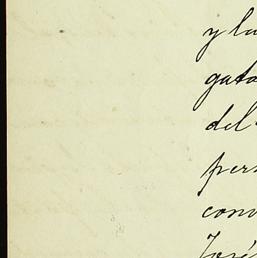 y la
gata
del
pers
conv
José